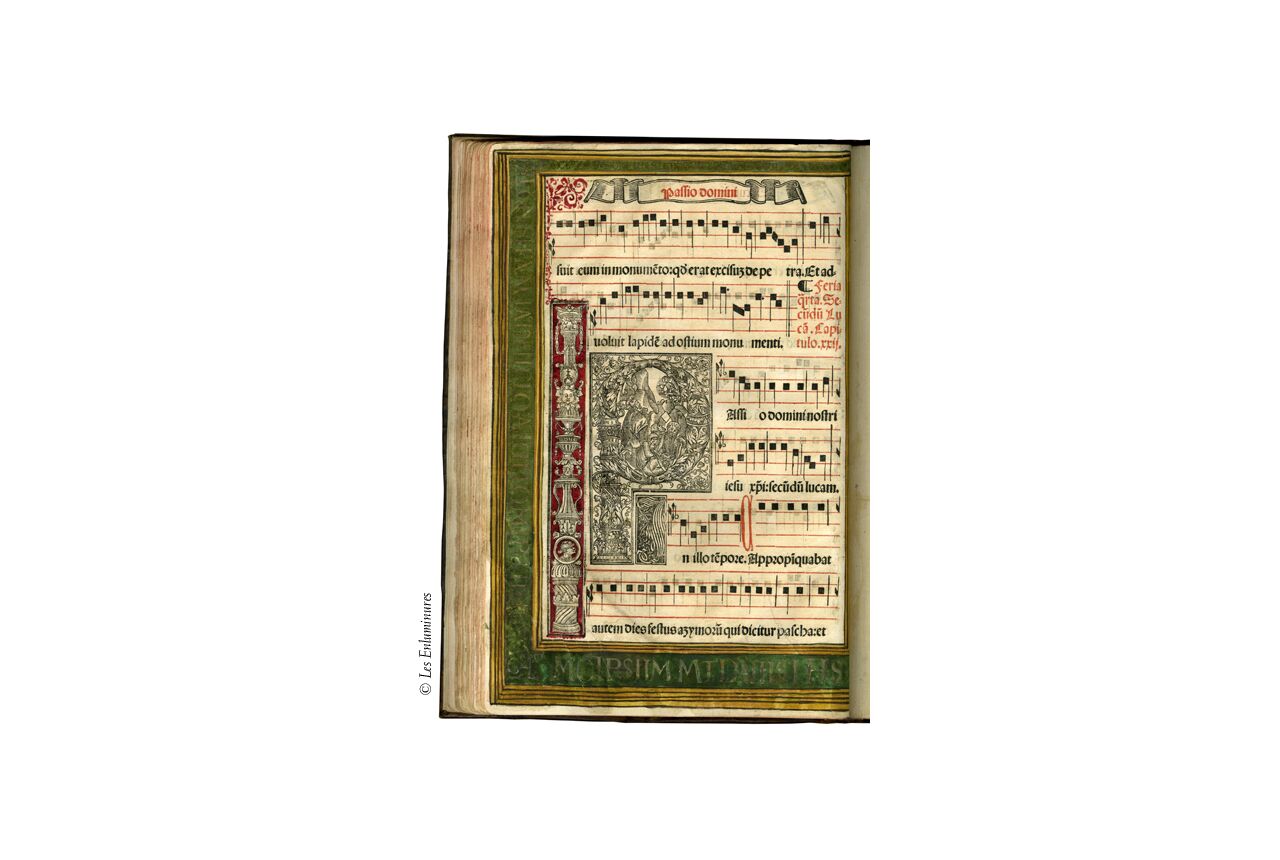 Passio domini
suit eum in monumẽto: qđ erat excisuʒ de pe tra. Et ad-
uoluit lapidẽ ad ostium monu menti.
¶ Feria
q̃rta. Se-
cũdũ Lu
cã. Capi
tulo. xxij.
Assi o domini nostri
iesu xp̃i: secũdũ lucam.
n illo tẽpore. Appropĩquabat
autem dies festus aʒymorũ qui dicitur pascha: et
© Les Enluminures